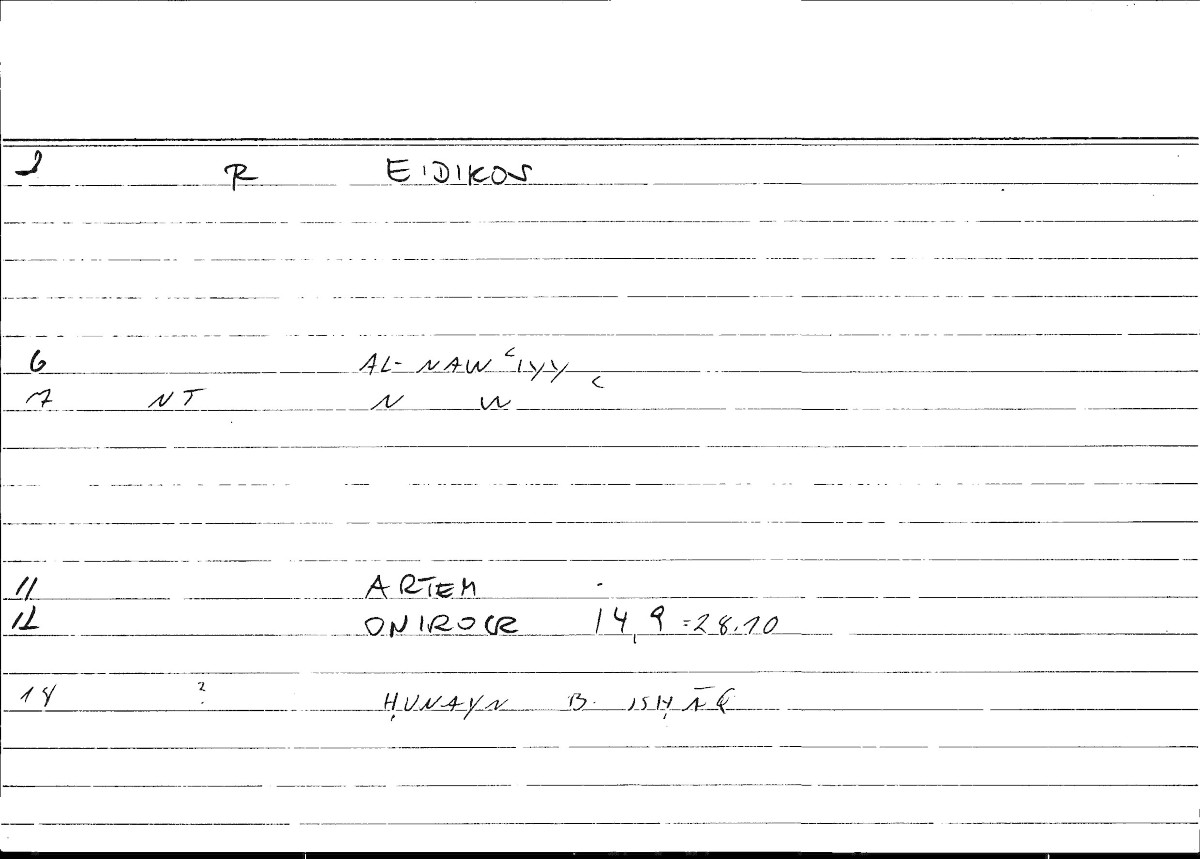 2 R EIDIKOS
6 AL-NAWʿIYY
7 NT N W ʿ
11 ARTEM
12 ONIROCR 14,9 =28.10
14 ? ḤUNAYN B. ISḤĀQ